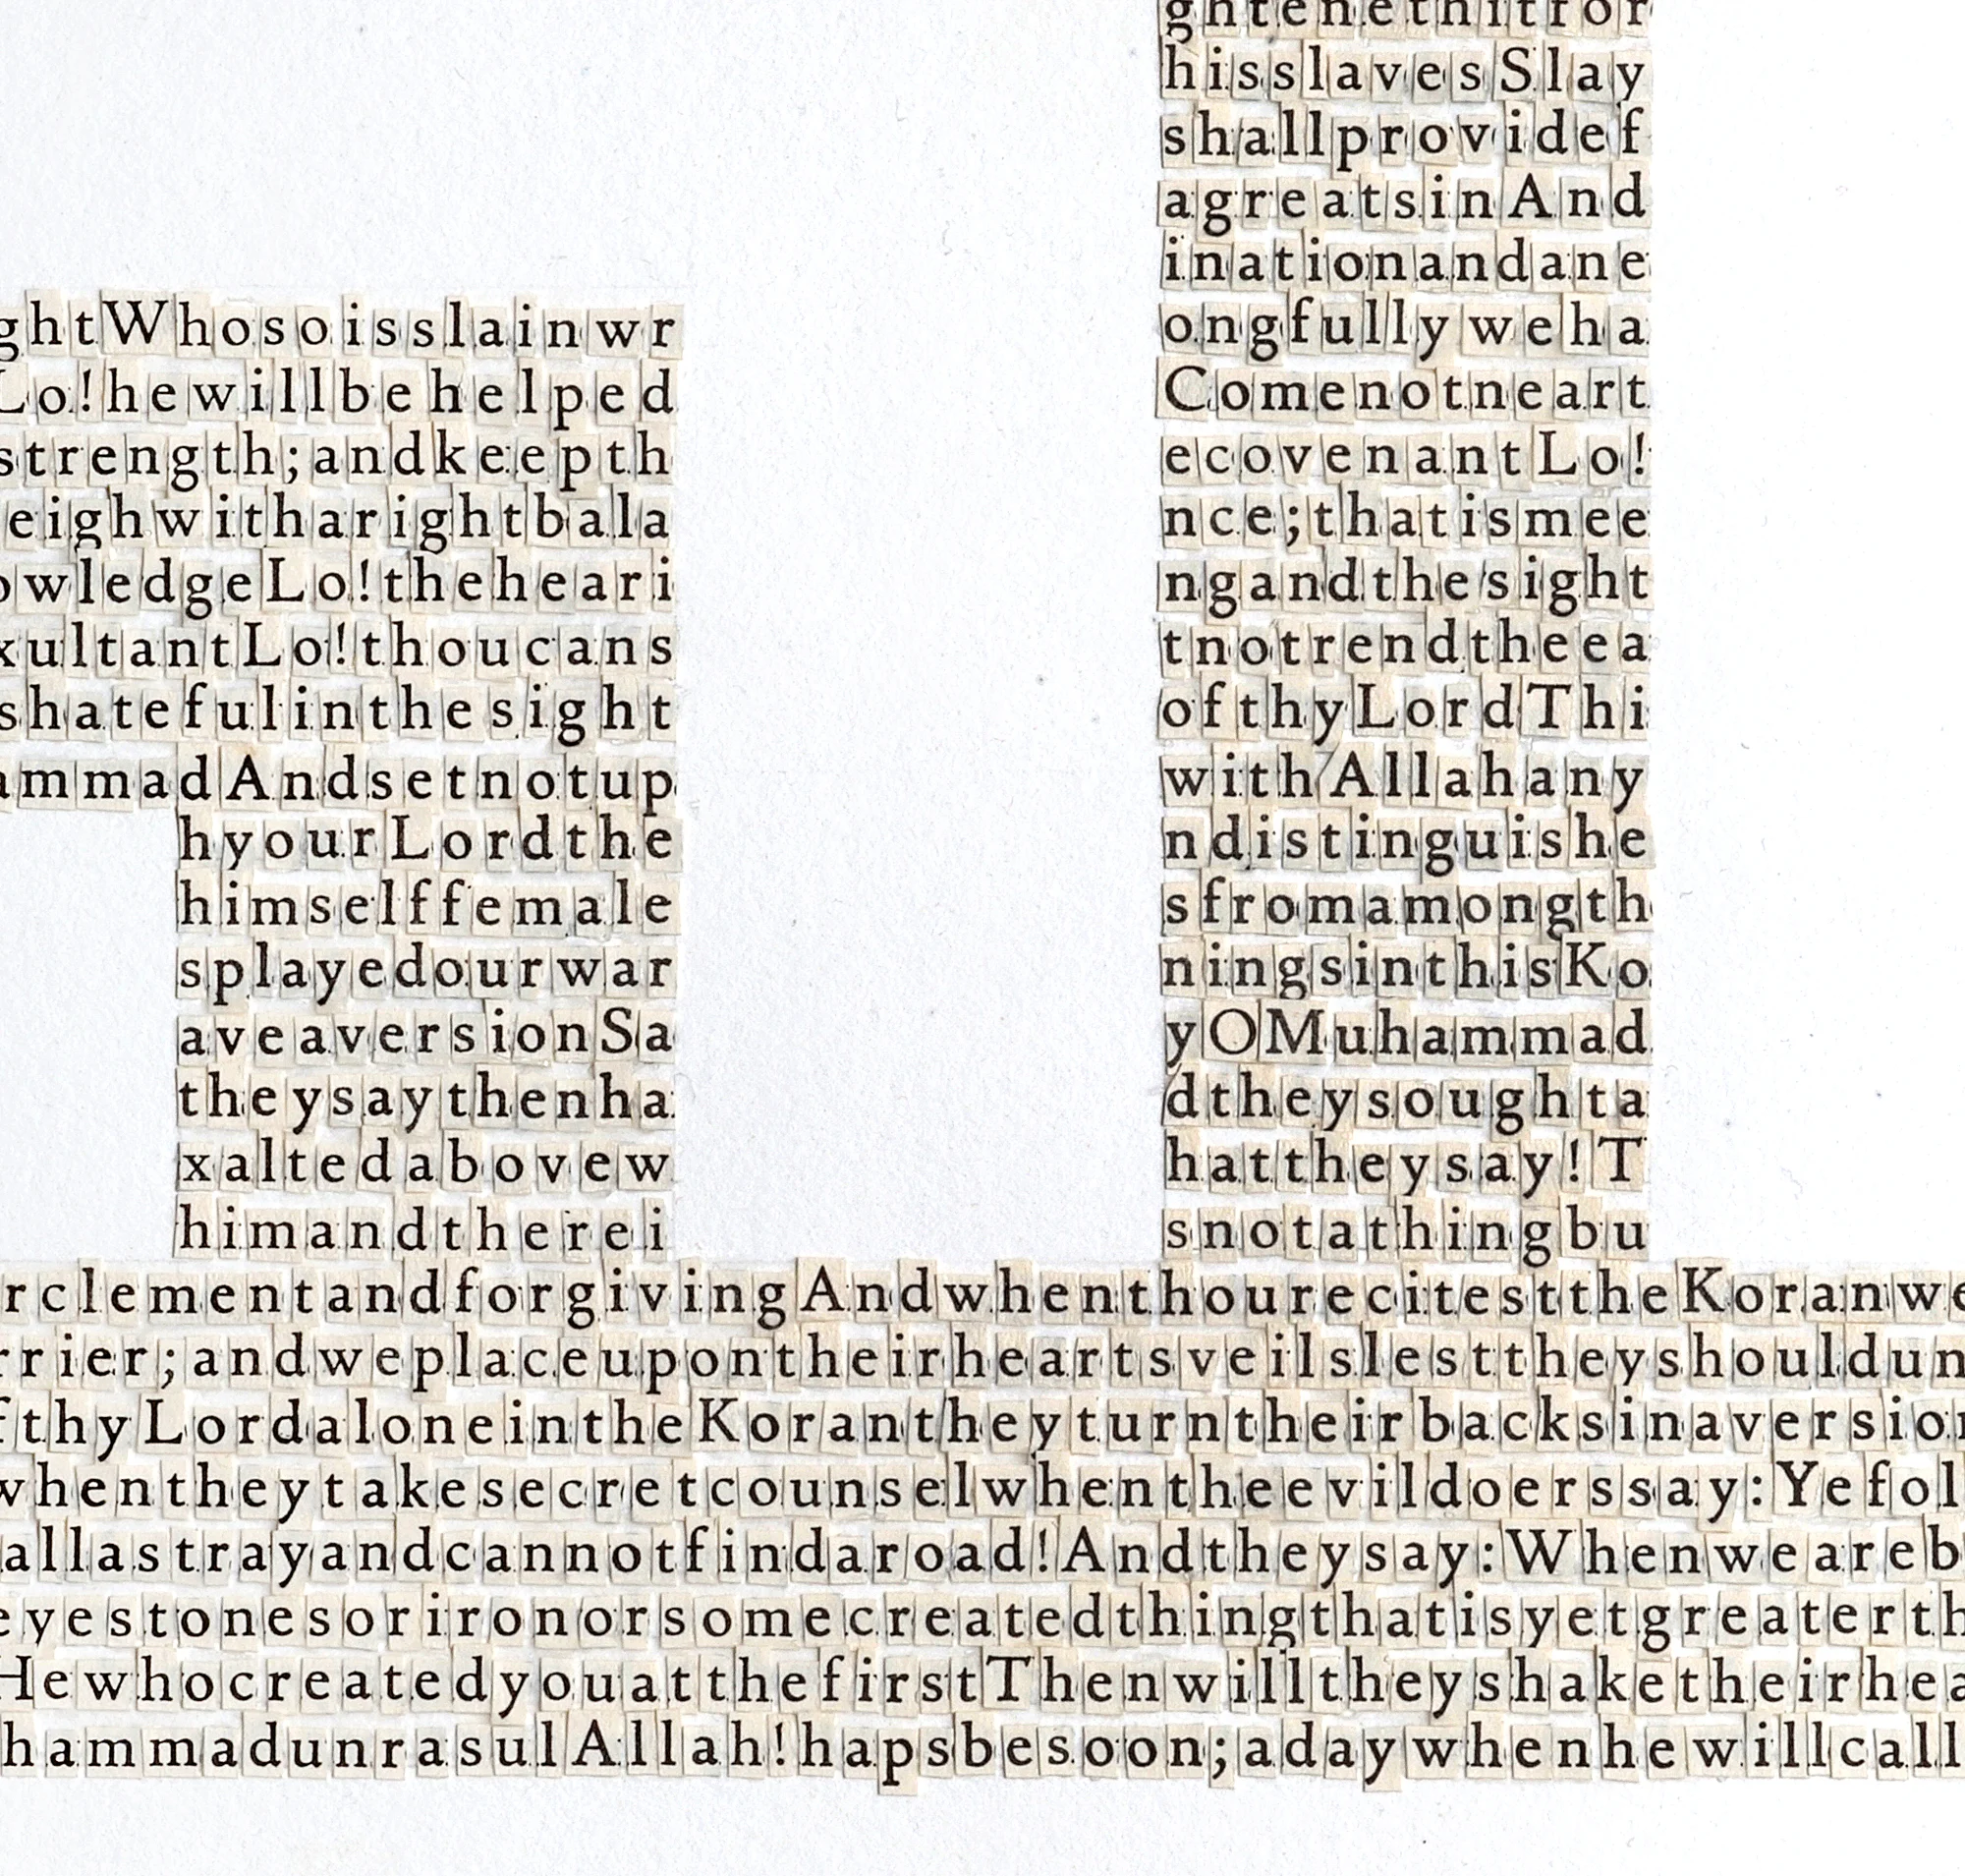 ghtenethitfor
hisslavesSlay
shallprovidef
agreatsinAnd
inationandane
ghtWhosoisslainwr ongfullyweha
Lo!hewillbehelped Comenotneart
strength;andkeepth ecovenantLo!
eighwitharightbala nce;thatismee
owledgeLo!theheari ngandthesight
xultantLo!thoucans tnotrendtheea
shatefulinthesight ofthyLordThi
ammadAndsetnotup withAllahany
hyourLordthe ndistinguishe
himselffemale sfromamongth
splayedourwar ningsinthisKo
aveaversionSa yOMuhammad
theysaythenha dtheysoughta
xaltedabovew hattheysay!T
himandtherei snotathingbu
rclementandforgivingAndwhenthourecitesttheKoranwe
rrier;andweplaceupontheirheartsveilslesttheyshouldun
fthyLordaloneintheKorantheyturntheirbacksinaversion
whentheytakesecretcounselwhentheevildoerssay:Yefol
allastrayandcannotfindaroad!Andtheysay:Whenweareb
eyestonesorironorsomecreatedthingthatisyetgreaterth
HewhocreatedyouatthefirstThenwilltheyshaketheirhea
hammadunrasulAllah!hapsbesoon;adaywhenhewillcall